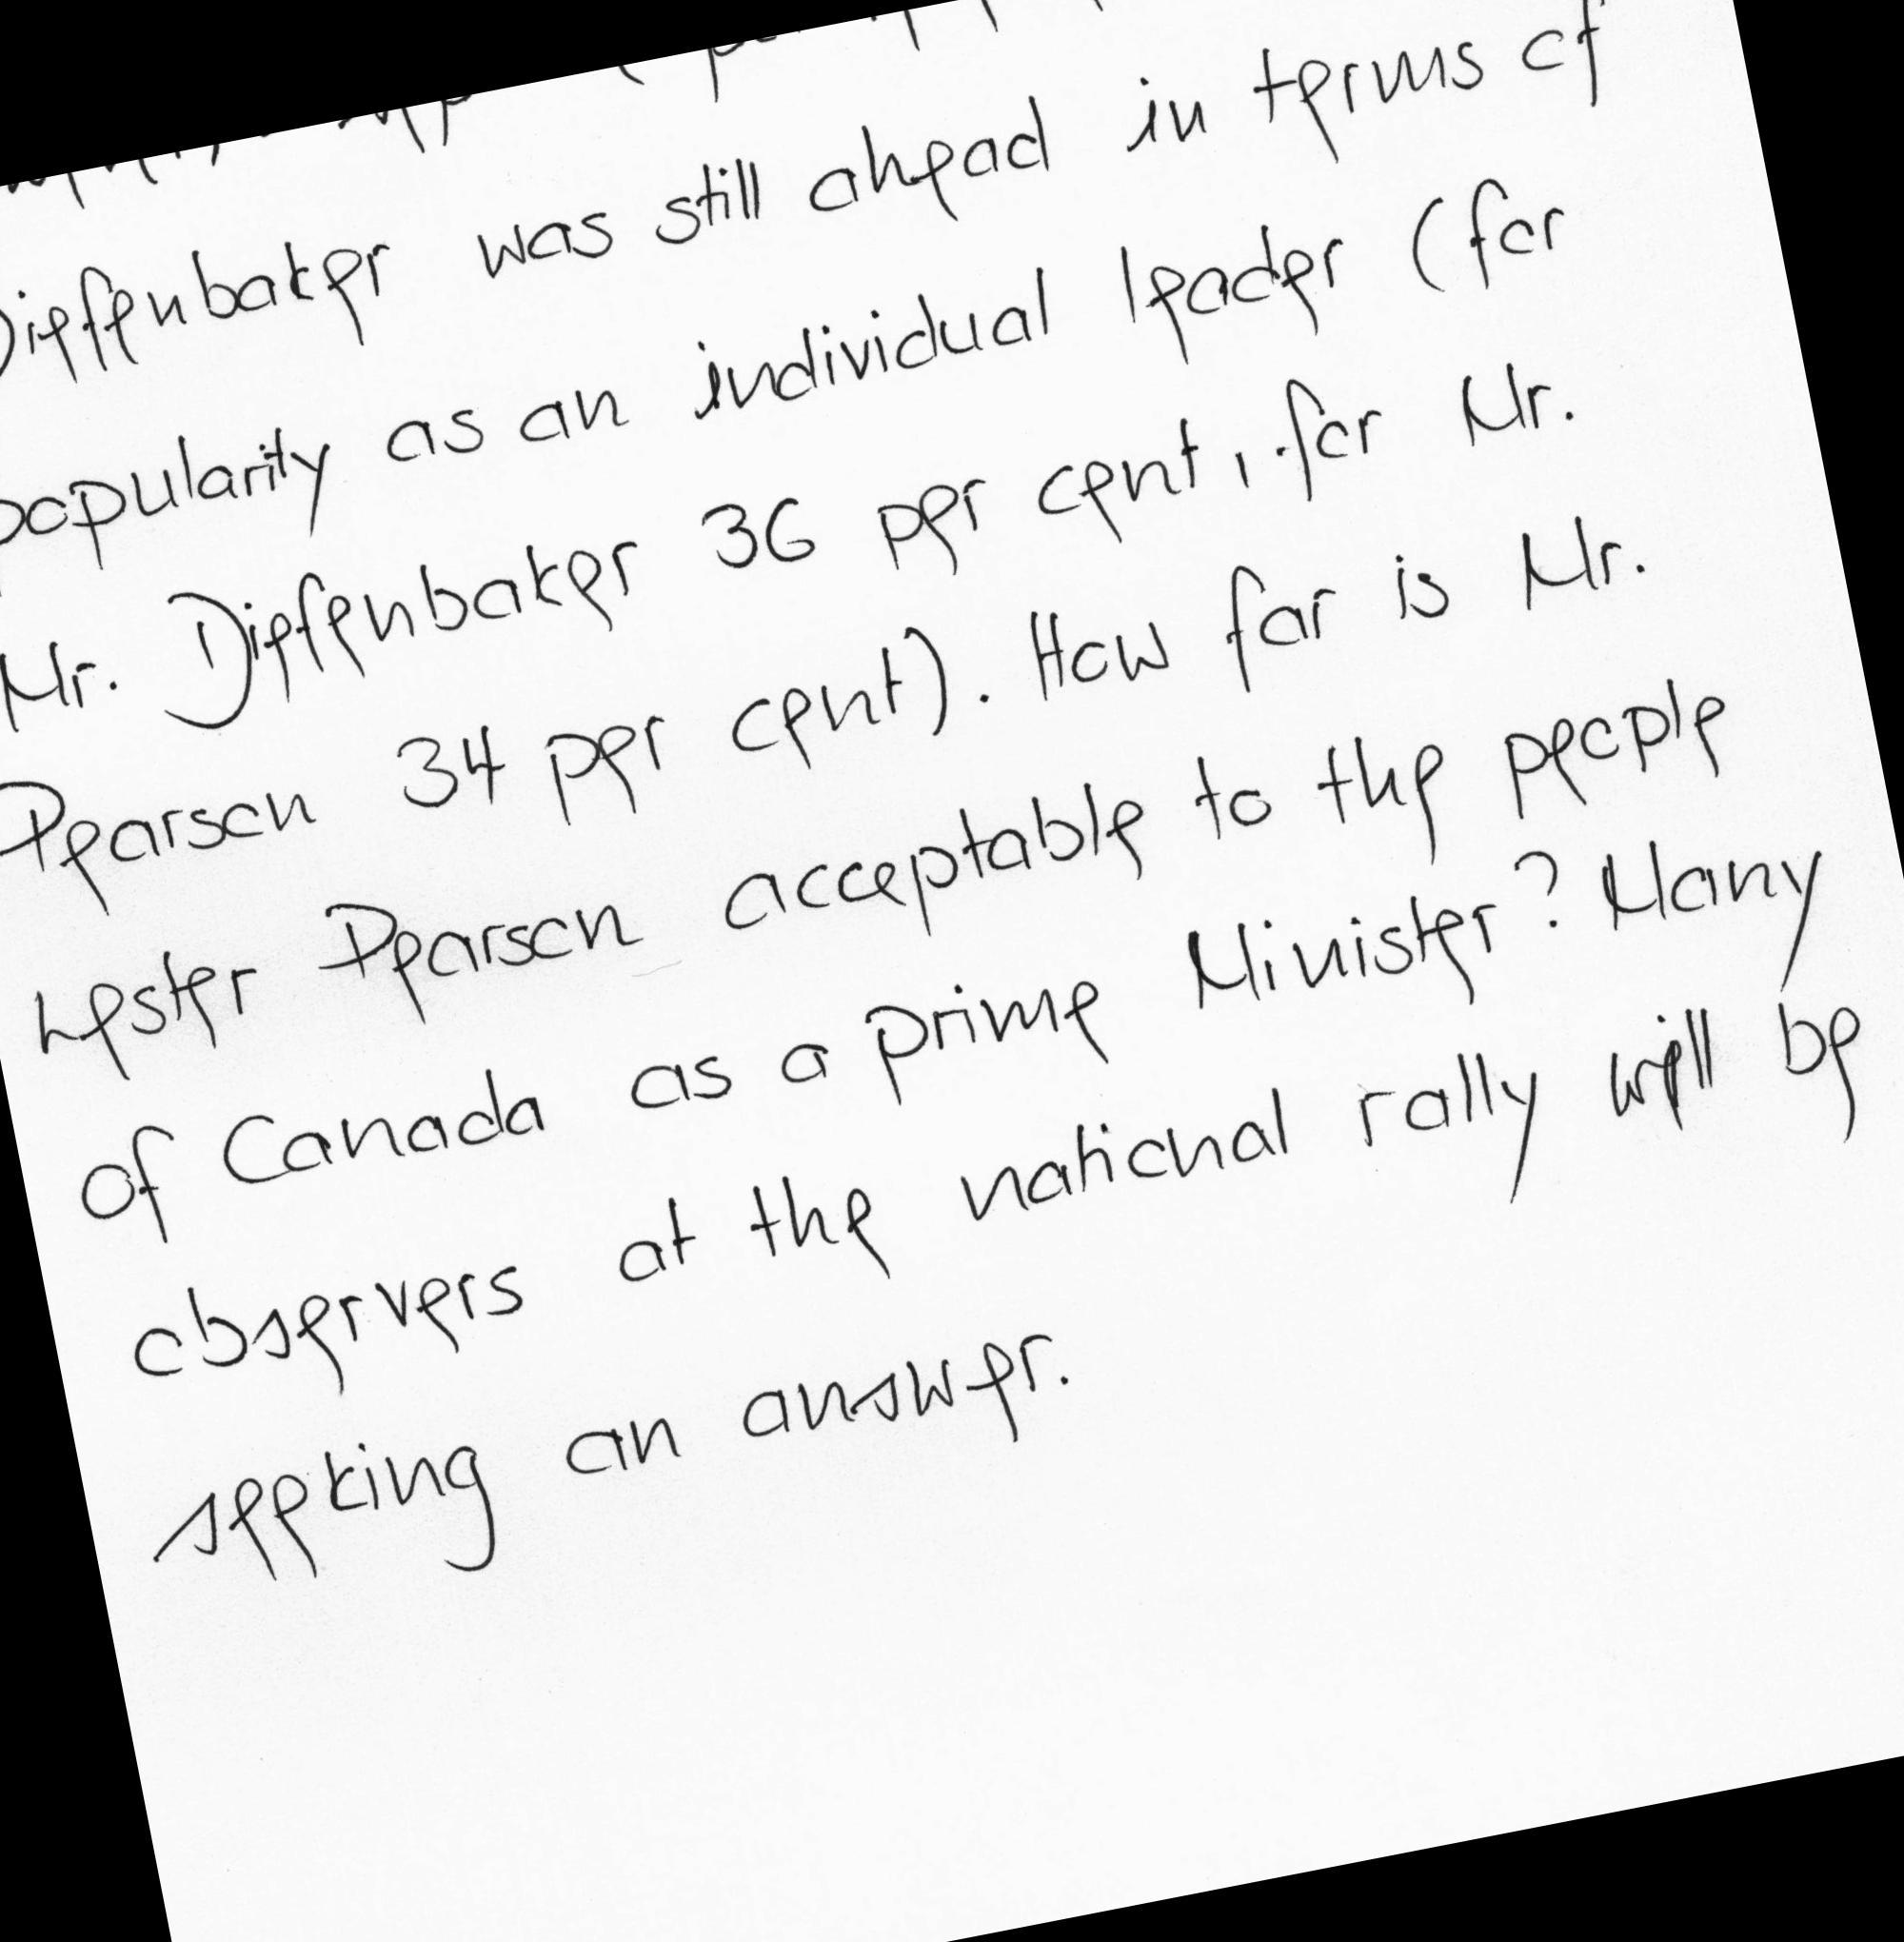 Dieffenbaker was still ahead in terms of
popularity as an individual leader (for
Mr. Dieffenbaker 36 per cent, for Mr.
Pearson 34 per cent). How far is Mr.
Lester Pearson acceptable to the people
of Canada as a prime Minister? Many
observers at the national rally will be
seeking an answer.